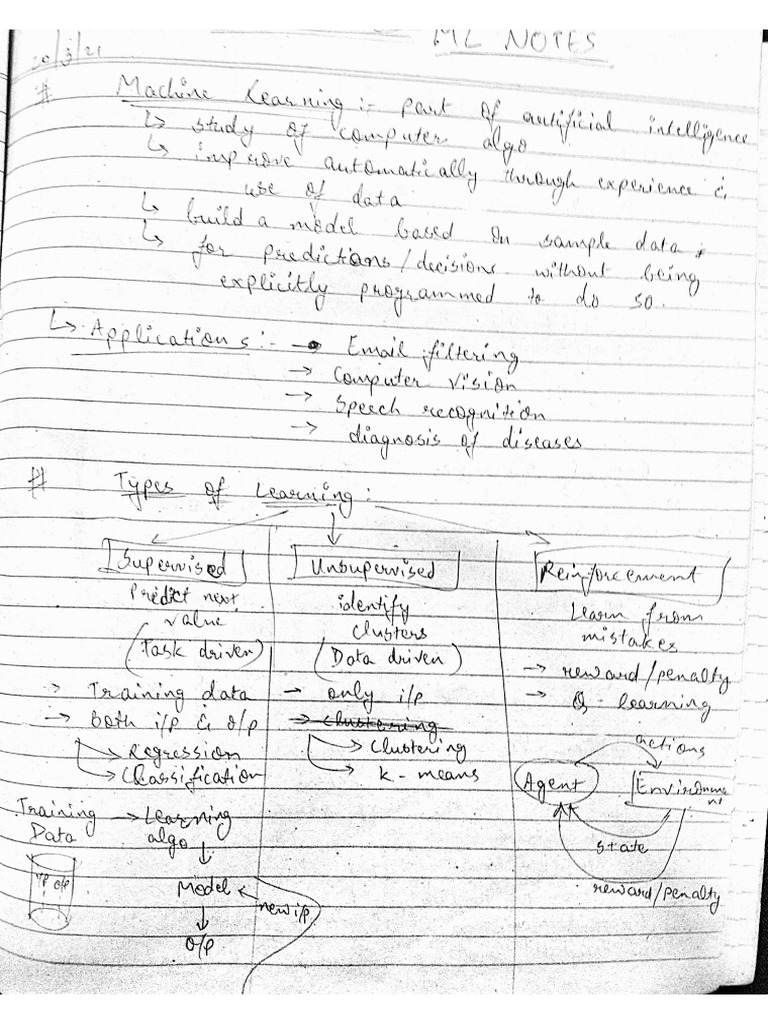 ML NOTES
20/3/21
# Machine Learning :- part of artificial intelligence
↳ study of computer algo
↳ improve automatically through experience &
use of data
↳ build a model based on sample data
↳ for predictions/decisions without being
explicitly programmed to do so.
↳ Applications :- → Email filtering
→ Computer vision
→ Speech recognition
→ diagnosis of diseases
# Types of Learning :
Supervised
Predict next
value
(Task driven)
→ Training data
→ both i/p & o/p
→ Regression
→ Classification
Training → Learning
Data algo
i/p o/p
Model
new i/p
O/p
Unsupervised
identify
clusters
(Data driven)
→ only i/p
→ clustering
→ Clustering
→ k-means
Reinforcement
Learn from
mistakes
→ reward/penalty
→ Q-learning
actions
Agent
Environment
state
reward/penalty